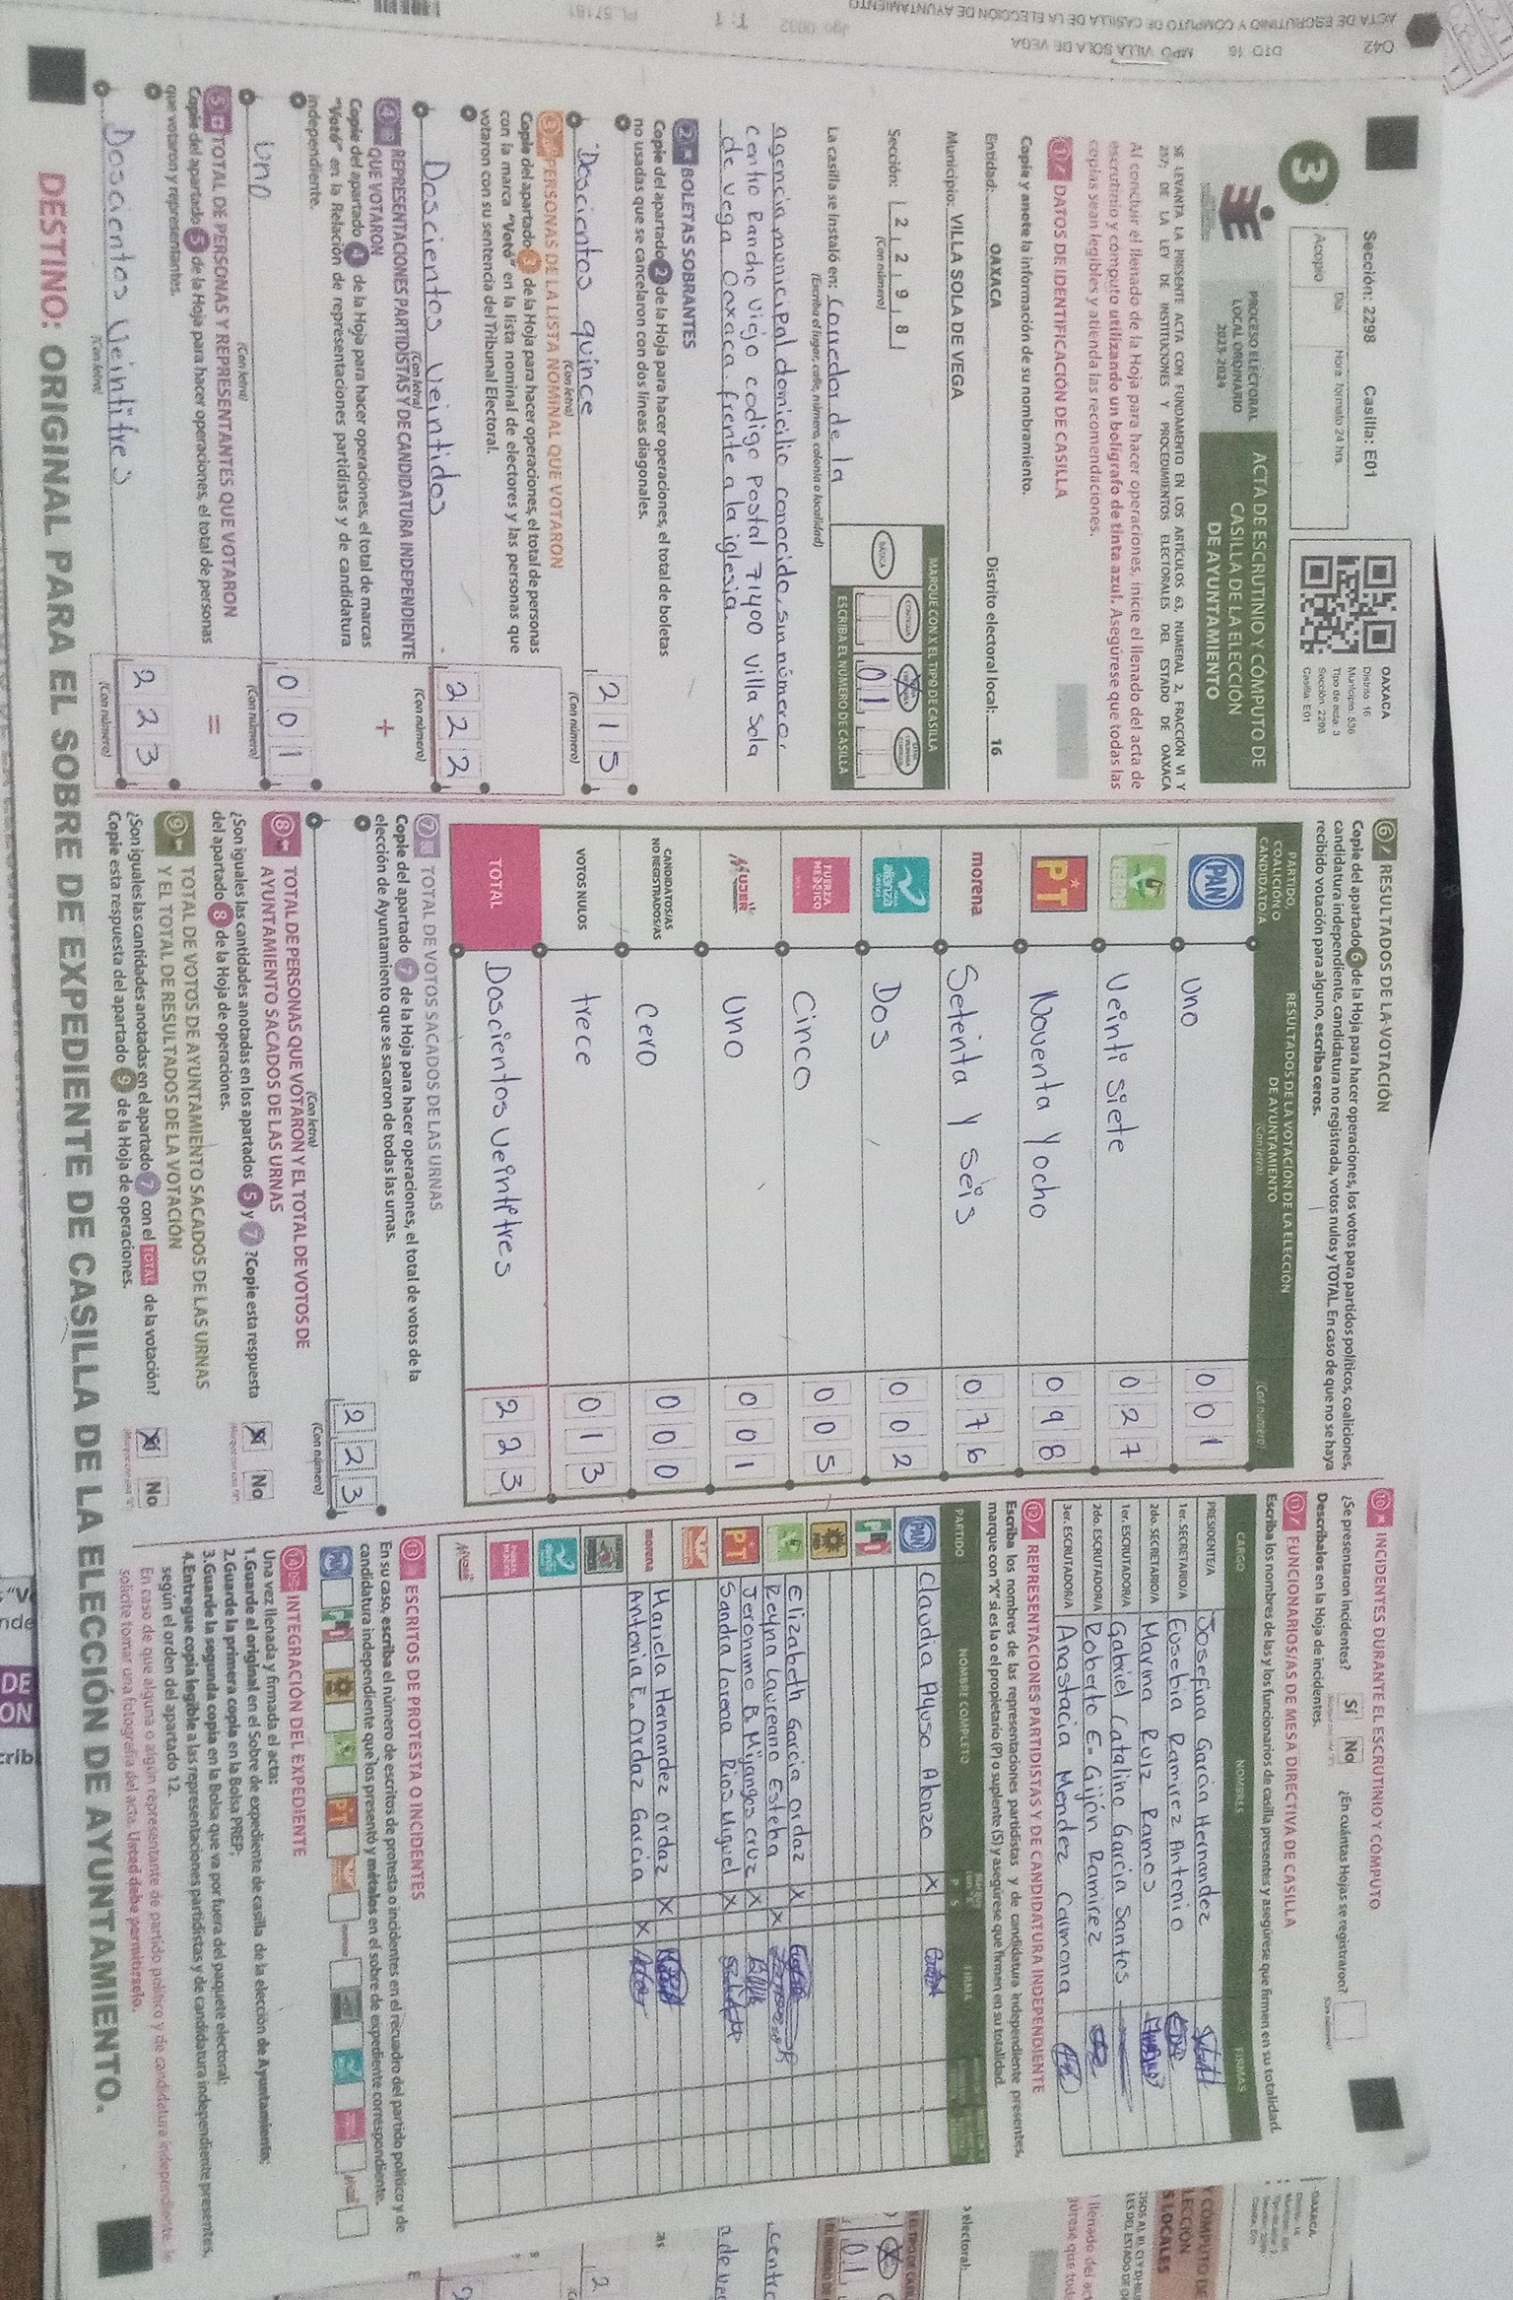 Sección: 2298 Casilla: E01
3
Acopio
Día
Hora: formato 24 hrs.
OAXACA
Distrito: 16
Municipio: 536
Tipo de acta: 3
Sección: 2298
Casilla: E01
PROCESO ELECTORAL
LOCAL ORDINARIO
2023-2024
ACTA DE ESCRUTINIO Y CÓMPUTO DE
CASILLA DE LA ELECCIÓN
DE AYUNTAMIENTO
SE LEVANTA LA PRESENTE ACTA CON FUNDAMENTO EN LOS ARTÍCULOS 63, NUMERAL 2, FRACCIÓN VI Y
257; DE LA LEY DE INSTITUCIONES Y PROCEDIMIENTOS ELECTORALES DEL ESTADO DE OAXACA
Al concluir el llenado de la Hoja para hacer operaciones, inicie el llenado del acta de
escrutinio y cómputo utilizando un bolígrafo de tinta azul. Asegúrese que todas las
copias sean legibles y atienda las recomendaciones.
1 DATOS DE IDENTIFICACIÓN DE CASILLA
Copie y anote la información de su nombramiento.
Entidad: OAXACA Distrito electoral local: 16
Municipio: VILLA SOLA DE VEGA
Sección: 2 2 9 8
(Con número)
MARQUE CON X EL TIPO DE CASILLA
BÁSICA
0 1
ESCRIBA EL NÚMERO DE CASILLA
La casilla se instaló en: Corredor de la
(Escriba el lugar, calle, número, colonia o localidad)
agencia municipal domicilio conocido, sin número,
centro Rancho Viejo codigo Postal 71400 Villa Sola
de vega Oaxaca. frente a la iglesia.
2 BOLETAS SOBRANTES
Copie del apartado 2 de la Hoja para hacer operaciones, el total de boletas
no usadas que se cancelaron con dos líneas diagonales.
Doscientos quince 2 1 5
(Con letra) (Con número)
3 PERSONAS DE LA LISTA NOMINAL QUE VOTARON
Copie del apartado 3 de la Hoja para hacer operaciones, el total de personas
con la marca "Votó" en la lista nominal de electores y las personas que
votaron con su sentencia del Tribunal Electoral.
Doscientos Veintidos 2 2 2
(Con letra) (Con número)
4 REPRESENTACIONES PARTIDISTAS Y DE CANDIDATURA INDEPENDIENTE
QUE VOTARON +
Copie del apartado 4 de la Hoja para hacer operaciones, el total de marcas
"Votó" en la Relación de representaciones partidistas y de candidatura
independiente.
Uno 0 0 1
(Con letra) (Con número)
5 TOTAL DE PERSONAS Y REPRESENTANTES QUE VOTARON =
Copie del apartado 5 de la Hoja para hacer operaciones, el total de personas
que votaron y representantes.
Doscientos Veintitres 2 2 3
(Con letra) (Con número)
6 RESULTADOS DE LA VOTACIÓN
Copie del apartado 6 de la Hoja para hacer operaciones, los votos para partidos políticos, coaliciones,
candidatura independiente, candidatura no registrada, votos nulos y TOTAL. En caso de que no se haya
recibido votación para alguno, escriba ceros.
PARTIDO,
COALICIÓN O
CANDIDATO/A
RESULTADOS DE LA VOTACIÓN DE LA ELECCIÓN
DE AYUNTAMIENTO
(Con letra) (Con número)
PAN Uno 0 0 1
VERDE Veinti siete 0 2 7
PT Noventa Y ocho 0 9 8
morena Setenta Y seis 0 7 6
alianza Dos 0 0 2
FUERZA MÉXICO Cinco 0 0 5
MUJER Uno 0 0 1
CANDIDATOS/AS
NO REGISTRADOS/AS Cero 0 0 0
VOTOS NULOS trece 0 1 3
TOTAL Doscientos veintitres 2 2 3
7 TOTAL DE VOTOS SACADOS DE LAS URNAS
Copie del apartado 7 de la Hoja para hacer operaciones, el total de votos de la
elección de Ayuntamiento que se sacaron de todas las urnas.
2 2 3
(Con letra) (Con número)
8 TOTAL DE PERSONAS QUE VOTARON Y EL TOTAL DE VOTOS DE
AYUNTAMIENTO SACADOS DE LAS URNAS
¿Son iguales las cantidades anotadas en los apartados 5 y 7? Copie esta respuesta
del apartado 8 de la Hoja de operaciones.
Sí No
9 TOTAL DE VOTOS DE AYUNTAMIENTO SACADOS DE LAS URNAS
Y EL TOTAL DE RESULTADOS DE LA VOTACIÓN
¿Son iguales las cantidades anotadas en el apartado 7 con el TOTAL de la votación?
Copie esta respuesta del apartado 9 de la Hoja de operaciones.
Sí No
10 INCIDENTES DURANTE EL ESCRUTINIO Y CÓMPUTO
¿Se presentaron incidentes? Sí No ¿En cuántas Hojas se registraron?
Descríbalos en la Hoja de incidentes.
11 FUNCIONARIOS/AS DE MESA DIRECTIVA DE CASILLA
Escriba los nombres de las y los funcionarios de casilla presentes y asegúrese que firmen en su totalidad.
CARGO NOMBRES FIRMAS
PRESIDENTE/A Josefina Garcia Hernandez
1er. SECRETARIO/A Eusebia Ramirez Antonio
2do. SECRETARIO/A Marina Ruiz Ramos
1er. ESCRUTADOR/A Gabriel Catalino Garcia Santos
2do. ESCRUTADOR/A Roberto E. Gijón Ramirez
3er. ESCRUTADOR/A Anastacia Mendez Carmona
12 REPRESENTACIONES PARTIDISTAS Y DE CANDIDATURA INDEPENDIENTE
Escriba los nombres de las representaciones partidistas y de candidatura independiente presentes,
marque con "X" si es la o el propietario (P) o suplente (S) y asegúrese que firmen en su totalidad.
PARTIDO NOMBRE COMPLETO P S FIRMA
PAN Claudia Ayuso Alonzo X
Elizabeth Garcia ordaz X
Reyna Laureano Esteba X
Jeronimo B. Mijangos cruz X
PT Sandra Lorena Rios Miguel X
Mariela Hernandez ordaz X
morena Antonia E. Ordaz Garcia X
13 ESCRITOS DE PROTESTA O INCIDENTES
En su caso, escriba el número de escritos de protesta o incidentes en el recuadro del partido político y de
candidatura independiente que los presentó y métalos en el sobre de expediente correspondiente.
14 INTEGRACIÓN DEL EXPEDIENTE
Una vez llenada y firmada el acta:
1.Guarde el original en el Sobre de expediente de casilla de la elección de Ayuntamiento;
2.Guarde la primera copia en la Bolsa PREP;
3.Guarde la segunda copia en la Bolsa que va por fuera del paquete electoral;
4.Entregue copia legible a las representaciones partidistas y de candidatura independiente presentes,
según el orden del apartado 12.
En caso de que alguna o algún representante de partido político y de candidatura independiente le
solicite tomar una fotografía del acta. Usted debe permitírselo.
DESTINO: ORIGINAL PARA EL SOBRE DE EXPEDIENTE DE CASILLA DE LA ELECCIÓN DE AYUNTAMIENTO.
ACTA DE ESCRUTINIO Y CÓMPUTO DE CASILLA DE LA ELECCION DE AYUNTAMIENTO
042 DTO 16 MPO VILLA SOLA DE VEGA